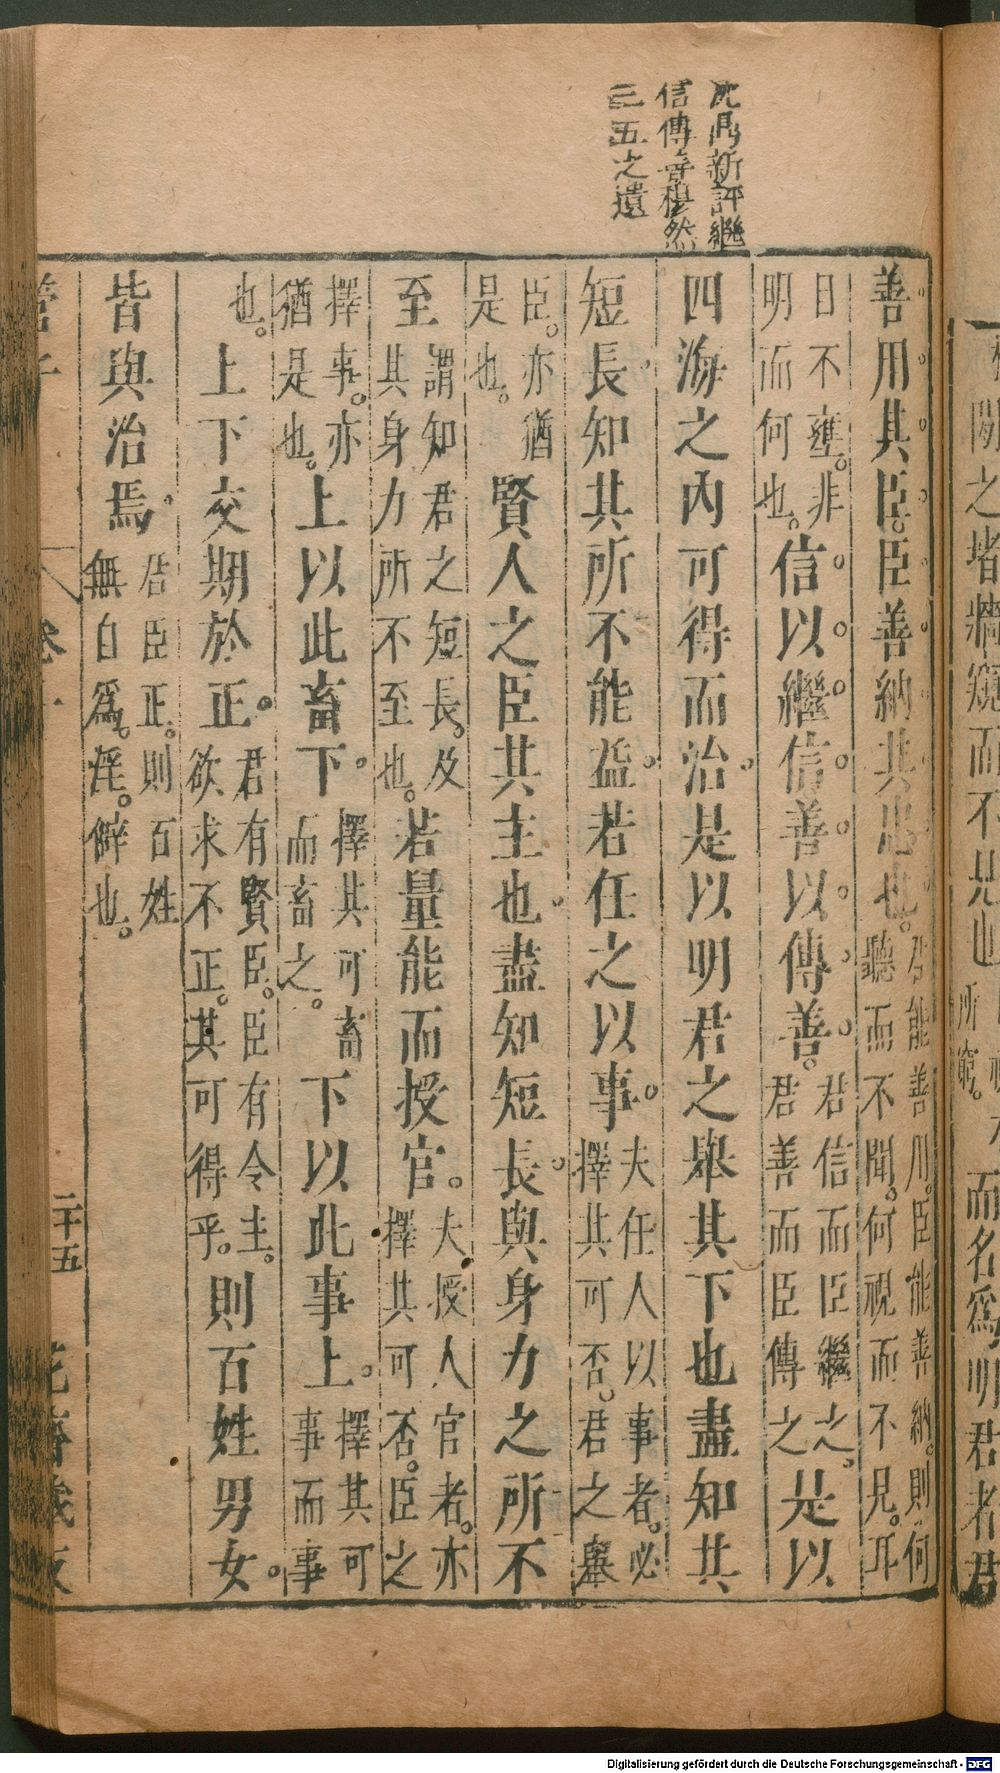 沈鼎新評繼
信傳善穆然
三五之遺
善用其臣臣善納其忠也。君能善用。臣能善納。則何
聽而不聞。何視而不見。耳
目不壅。非
明而何也。信以繼信善以傳善。君信而臣繼之。
君善而臣傳之是以
四海之內可得而治是以明君之舉其下也盡知其
短長知其所不能益若任之以事夫任人以事者。必
擇其可否。君之舉
臣。亦猶
是也。賢人之臣其主也盡知短長與身力之所不
至謂知君之短長。及
其身力所不至也。若量能而授官。夫授人官者。亦
擇其可否。臣之
擇事。亦
猶是也。上以此畜下擇其可畜
而畜之。下以此事上。擇其可
事而事
也。上下交期於正君有賢臣。臣有令主。
欲求不正。其可得乎。則百姓男女
皆與治焉君臣正。則百姓
無自爲。淫僻也。
管子 卷十
二十五
花齋藏板
而名爲明君者君
之堵牆窺而不見也
所窮。
Digitalisierung gefördert durch die Deutsche Forschungsgemeinschaft - DFG